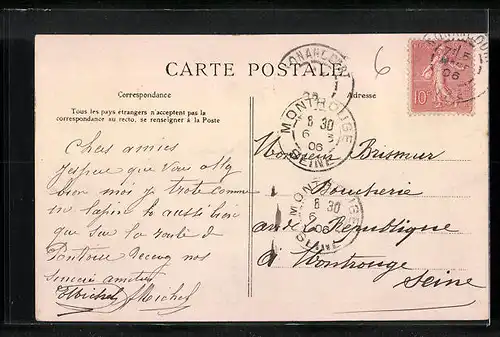 CARTE POSTALE
Correspondance
Adresse
Tous les pays étrangers n'acceptent pas la
correspondance au recto, se renseigner à la Poste
6
10
MONTROUGE
8 30
6
06
SEINE
MONTROUGE
8 30
6
06
Chers amies
J'espère que vous allez
bien moi je trotte comme
un lapin
que sur la route de
Pontoise Recevez nos
sincères amitiés
Michel
Monsieur Brismur
Boucherie
République
à Montrouge
Seine